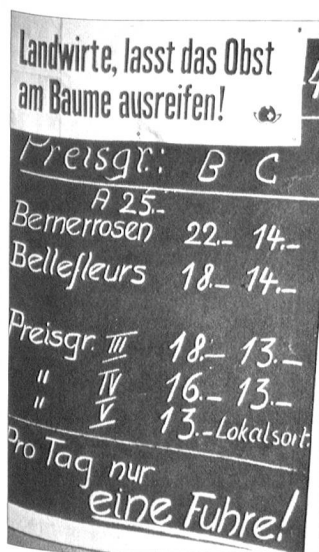 Landwirte, lasst das Obst
am Baume ausreifen!
Preisgr.: B C
A 25.-
Bernerrosen 22.- 14.-
Bellefleurs 18.- 14.-
Preisgr. III 18.- 13.-
" IV 16.- 13.-
" V 13.- Lokalsort.
Pro Tag nur
eine Fuhre!